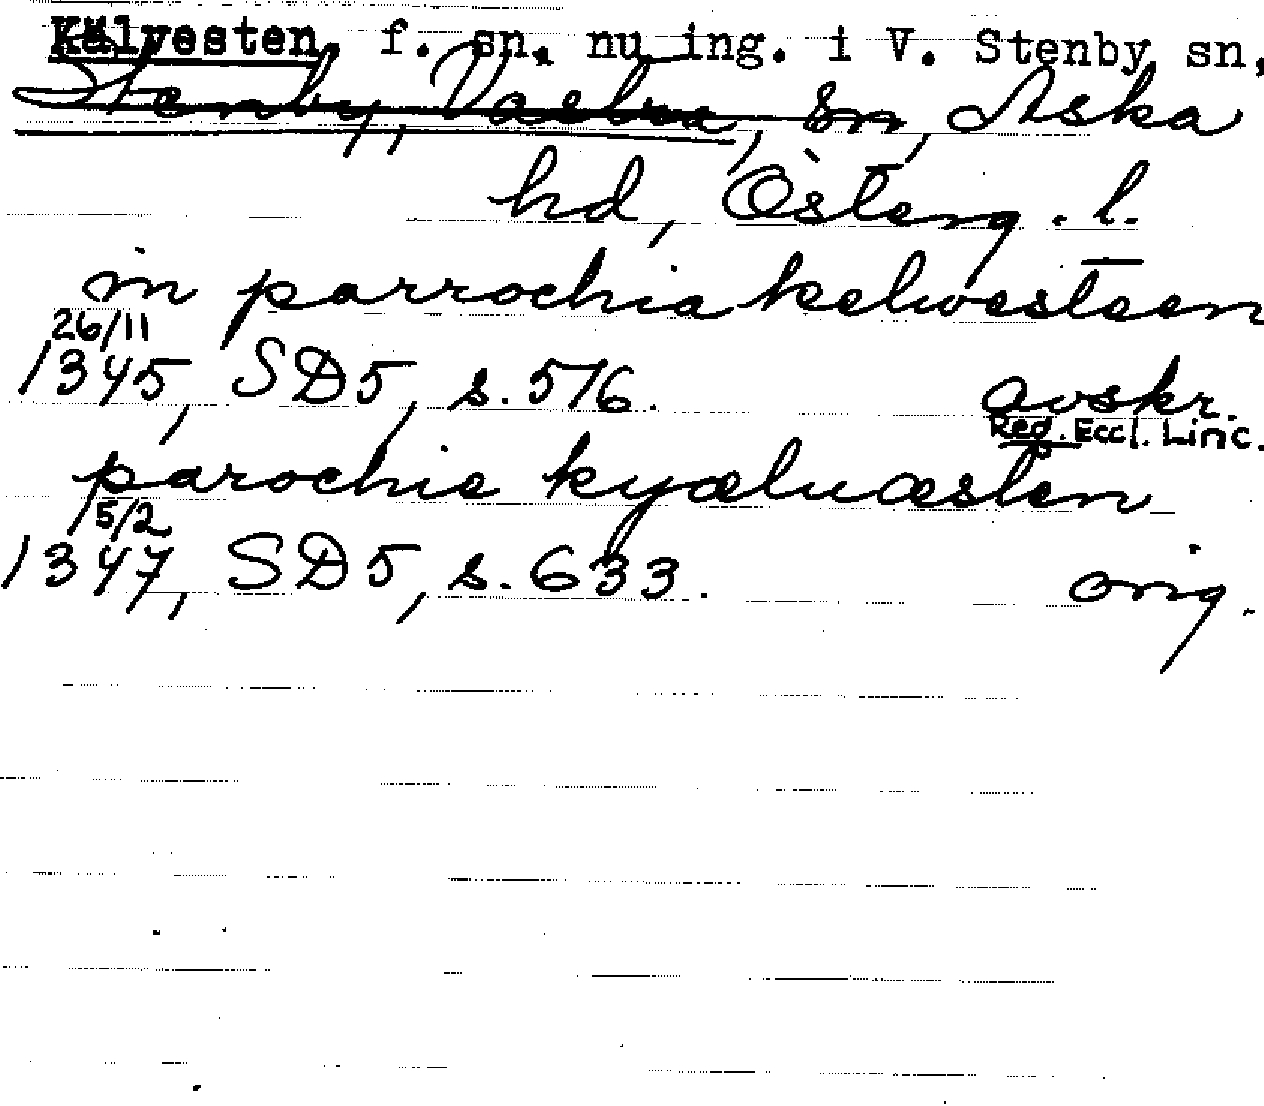 Kälvesten, f. sn, nu ing. i V. Stenby sn,
Stenby, Västra, sn, Aska
hd, Österg. l.
in parrochia kelwesteen
26/11
1345, SD5, s. 576. avskr.
Reg. Eccl. Linc.
parochie kyælwæsten
15/2
1347, SD5, s. 633. orig.